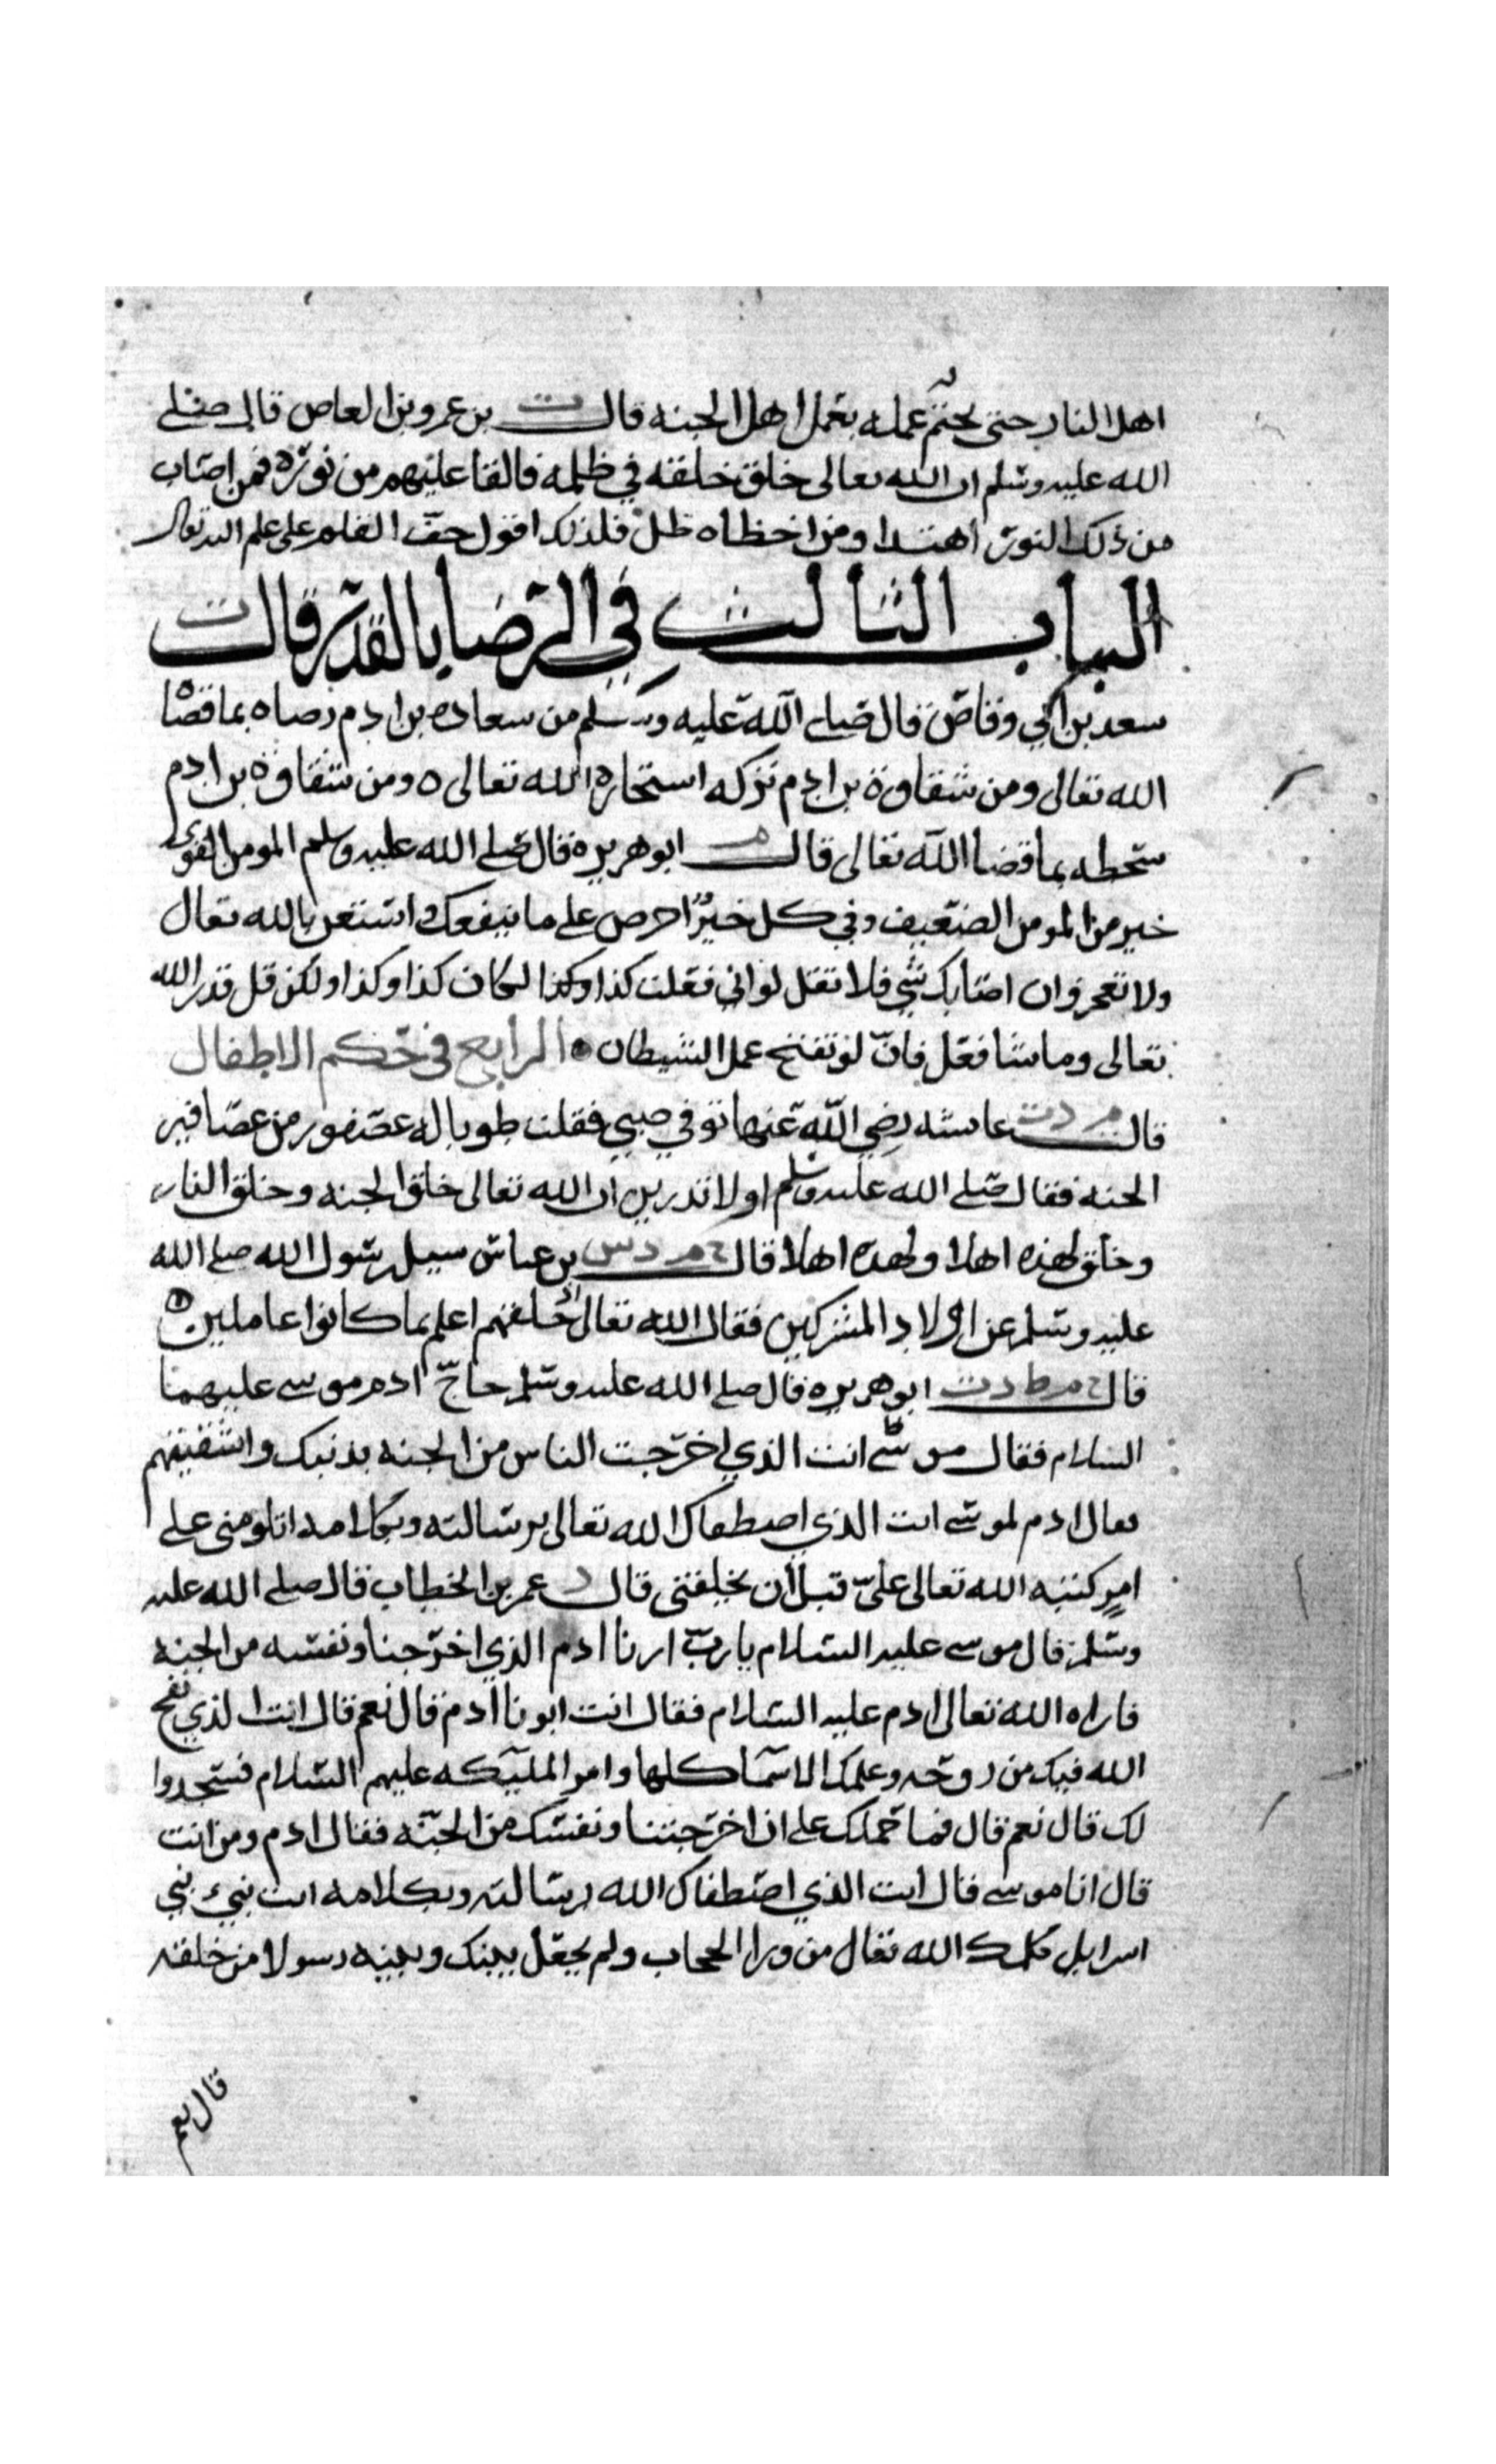 اهل النار حتى يختم عمله بعمل اهل الجنه قال ت بن عمرو بن العاص قال صلى
الله عليه وسلم ان الله تعالى خلق خلقه في ظلمه فالقا عليهم من نوره فمن اصاب
من ذلك النور اهتدا ومن اخطاه ظل فلذلك اقول جف القلم على علم الله تعالى
الباب الثالث في الرضا بالقدر قال ت
سعد بن ابي وقاص قال صلى الله عليه وسلم من سعاده بن ادم رضاه بما قضا
الله تعالى ومن شقاوة بن ادم تركه استخارة الله تعالى ه ومن شقاوة بن ادم
سخطه بما قضا الله تعالى قال م ابو هريره قال صلى الله عليه وسلم المومن القوى
خير من المومن الضعيف وفي كل خيرٌ احرص على ما ينفعك واستعن بالله تعالى
ولا تعجز وان اصابك شي فلا تقل لو اني فعلت كذا وكذا لكان كذا وكذا ولكن قل قدر الله
تعالى وما شا فعل فانّ لو تفتح عمل الشيطان ه الرابع في حكم الاطفال
قال م د ت عايشه رضي الله عنها توفي صبي فقلت طوبا له عصفور من عصافير
الجنه فقال صلى الله عليه وسلم اولا تدرين ان الله تعالى خلق الجنه وخلق النار
وخلق لهذه اهلا ولهذه اهلا قال خ م د س بن عباس سيل رسول الله صلى الله
عليه وسلم عن اولاد المشركين فقال الله تعالى اذ خلقهم اعلم بما كانوا عاملين ه
قال خ م ط د ت ابو هريره قال صلى الله عليه وسلم حاجّ ادم موسى عليهما
السلام فقال موسى انت الذي اخرجت الناس من الجنه بذنبك واشقيتهم
فقال ادم لموسى انت الذي اصطفاك الله تعالى برسالته وبكلامه اتلومني على
امرٍ كتبه الله تعالى عليّ قبل أن يخلقني قال د عمر بن الخطاب قال صلى الله عليه
وسلم قال موسى عليه السلام يا ربّ ارنا ادم الذي اخرجنا ونفسه من الجنه
فاراه الله تعالى ادم عليه السلام فقال انت ابونا آدم قال نعم قال انت الذي نفخ
الله فيك من روحه وعلمك الاسما كلها وامر المليكه عليهم السلام فسجدوا
لك قال نعم قال فما حملك على ان اخرجتنا ونفسك من الجنّه فقال ادم ومن انت
قال انا موسى قال انت الذي اصطفاك الله برسالته وبكلامه انت نبيء بني
اسرايل كلمك الله تعالى من ورا الحجاب ولم يجعل بينك وبينه رسولا من خلقه
قال نعم